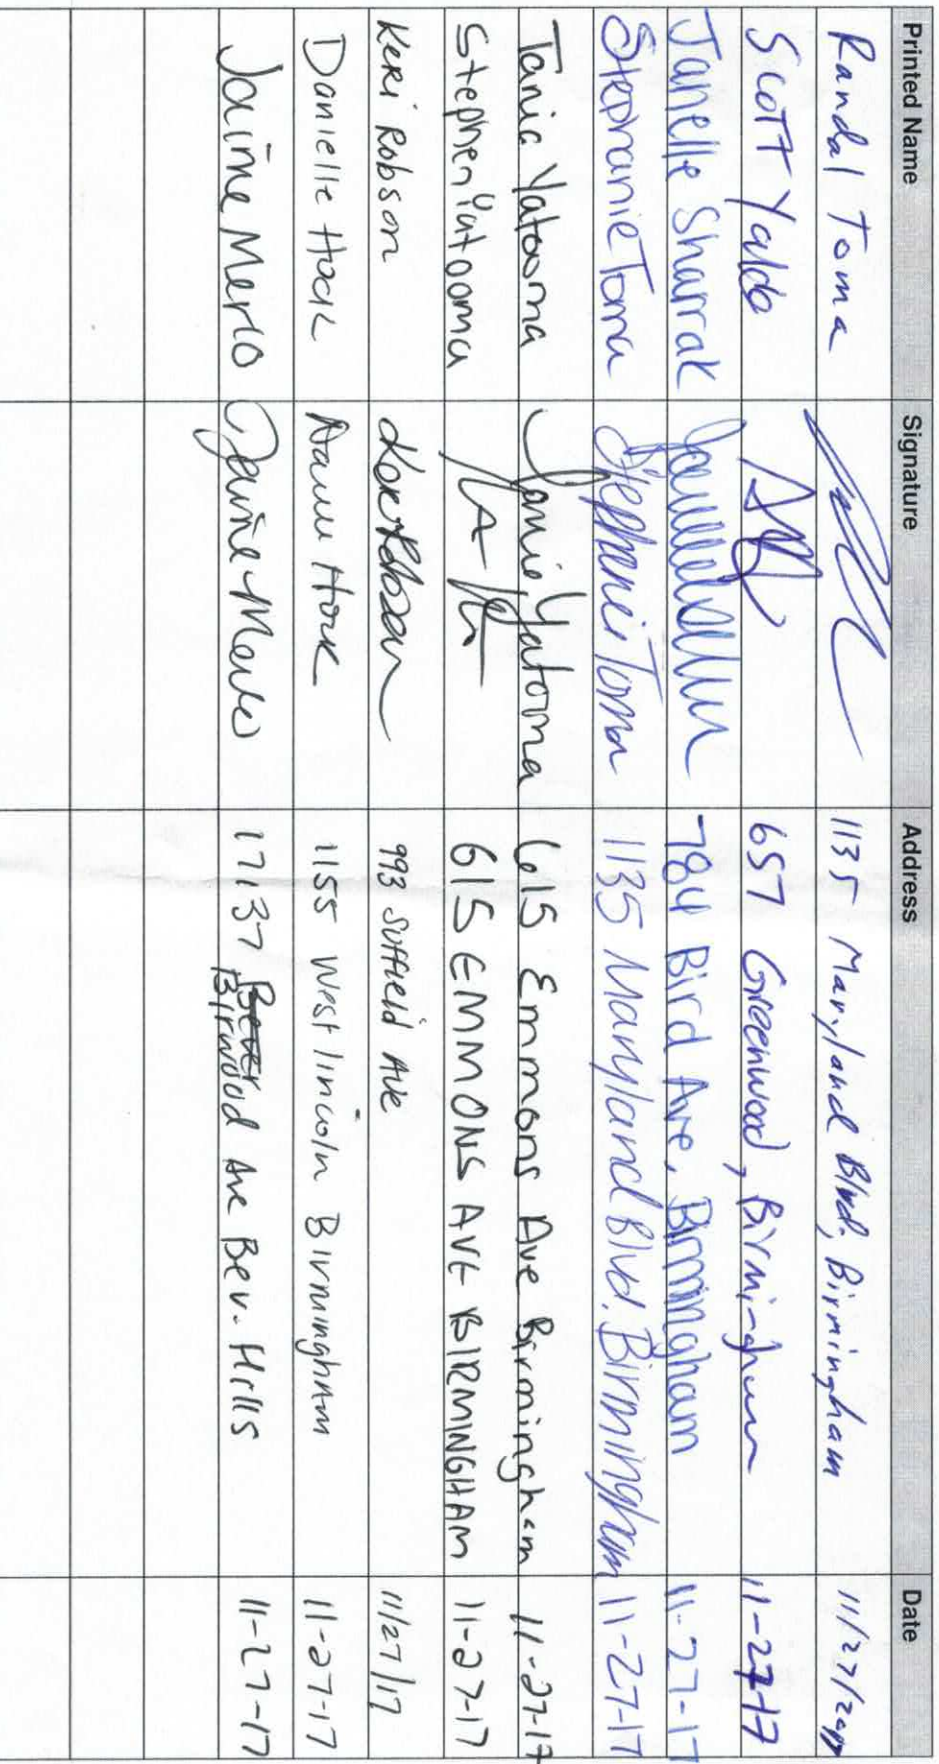 Printed Name Signature Address Date
Randal Toma 1135 Maryland Blvd, Birmingham 11/27/2017
Scott Yaldo 657 Greenwood, Birmingham 11-27-17
Janelle Sharrak 784 Bird Ave, Birmingham 11-27-17
Stephanie Toma Stephanie Toma 1135 Maryland Blvd. Birmingham 11-27-17
Tania Yatooma Tania Yatooma 615 Emmons Ave Birmingham 11-27-17
Stephen Yatooma 615 EMMONS AVE BIRMINGHAM 11-27-17
Keri Robson 993 Suffield Ave 11/27/17
Danielle 1155 West Lincoln Birmingham 11-27-17
Jaime Merlo Jaime Merlo 17137 Birwood Ave Bev. Hills 11-27-17